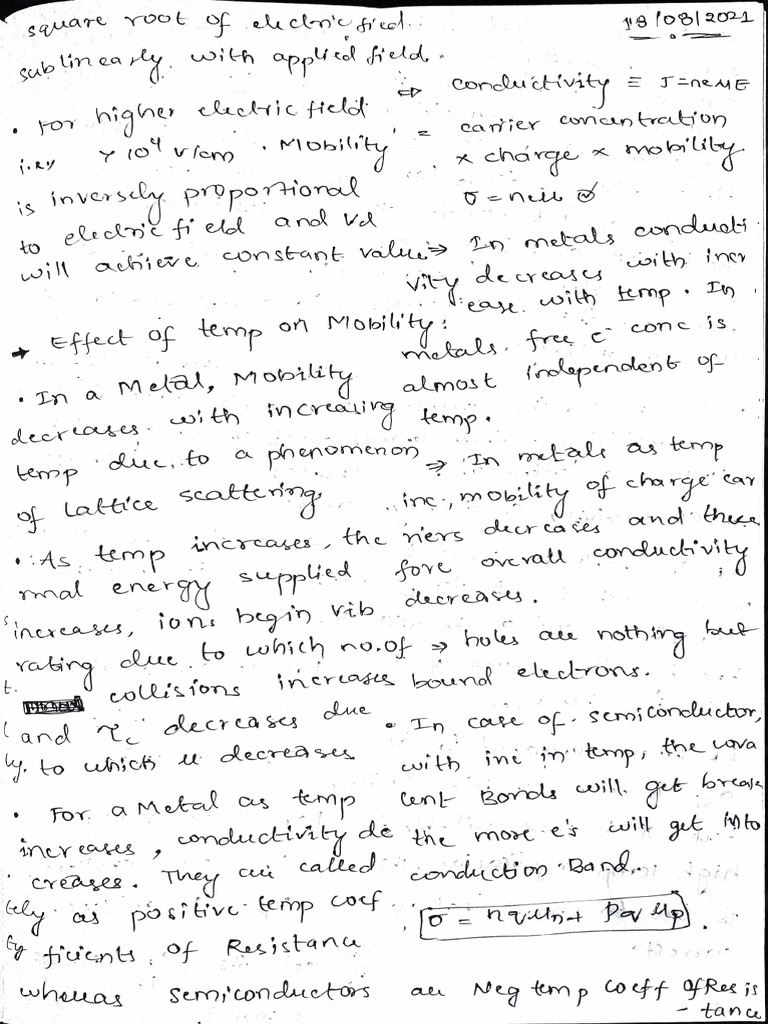 square root of electric field.
sublinearly with applied field.
• For higher electric field
i.e, > 10⁴ v/cm . Mobility
is inversely proportional
to electric field and Vd
will achieve constant value
→ Effect of temp on Mobility:
• In a Metal, Mobility
decreases with increasing
temp due to a phenomenon
of Lattice scattering.
• As temp increases, the
rmal energy supplied
increases, ions begin vib
rating due to which no. of
collisions increases
and τc decreases due
to which μ decreases
• For a Metal as temp
increases, conductivity de
creases. They are called
as positive temp coef
ficients of Resistance
whereas semiconductors are Neg temp coeff of Resis
- tance
18/08/2021
⇒ conductivity ≡ J = neME
= carrier concentration
x charge x mobility.
σ = neμ
⇒ In metals conducti
vity decreases with incr
ease with temp. In
metals free e⁻ conc is
almost independent of
temp.
⇒ In metals as temp
inc, mobility of charge car
riers decreases and there
fore overall conductivity
decreases.
⇒ holes are nothing but
bound electrons.
• In case of semiconductor,
with inc in temp, the cova
lent Bonds will get break
the more e's will get into
conduction Band.
σ = nqμn + pqμp.